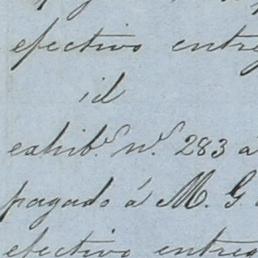 efectivo entreg
id
exhib.º n.º 283 a
pagado á M. G
efectivo entreg